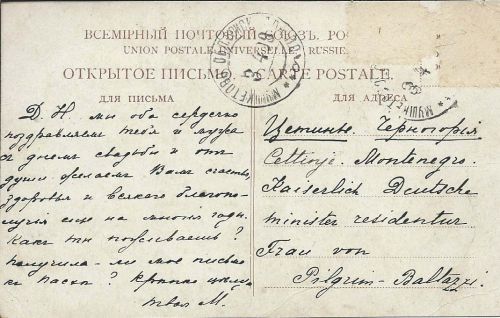 ВСЕМІРНЫЙ ПОЧТОВЫЙ СОЮЗЪ. РО
UNION POSTALE UNIVERSELLE. RUSSIE.
ОТКРЫТОЕ ПИСЬМО. CARTE POSTALE.
ДЛЯ ПИСЬМА
Д. Н. мы оба сердечно
поздравляем тебя и мужа
с днемъ свадьбы и отъ
души желаемъ Вамъ счастья,
здоровья и всякаго благопо-
лучія еще на многія годы.
Какъ ты поживаешь?
Получила-ли мое письмо
на Пасхи? Крѣпко цѣлую
твоя М.
ДЛЯ АДРЕСА
Цетинье. Черногорія
Cettinje. Montenegro.
Kaiserlich Deutsche
minister residentur
Frau von
Pilgrim-Baltazzi.